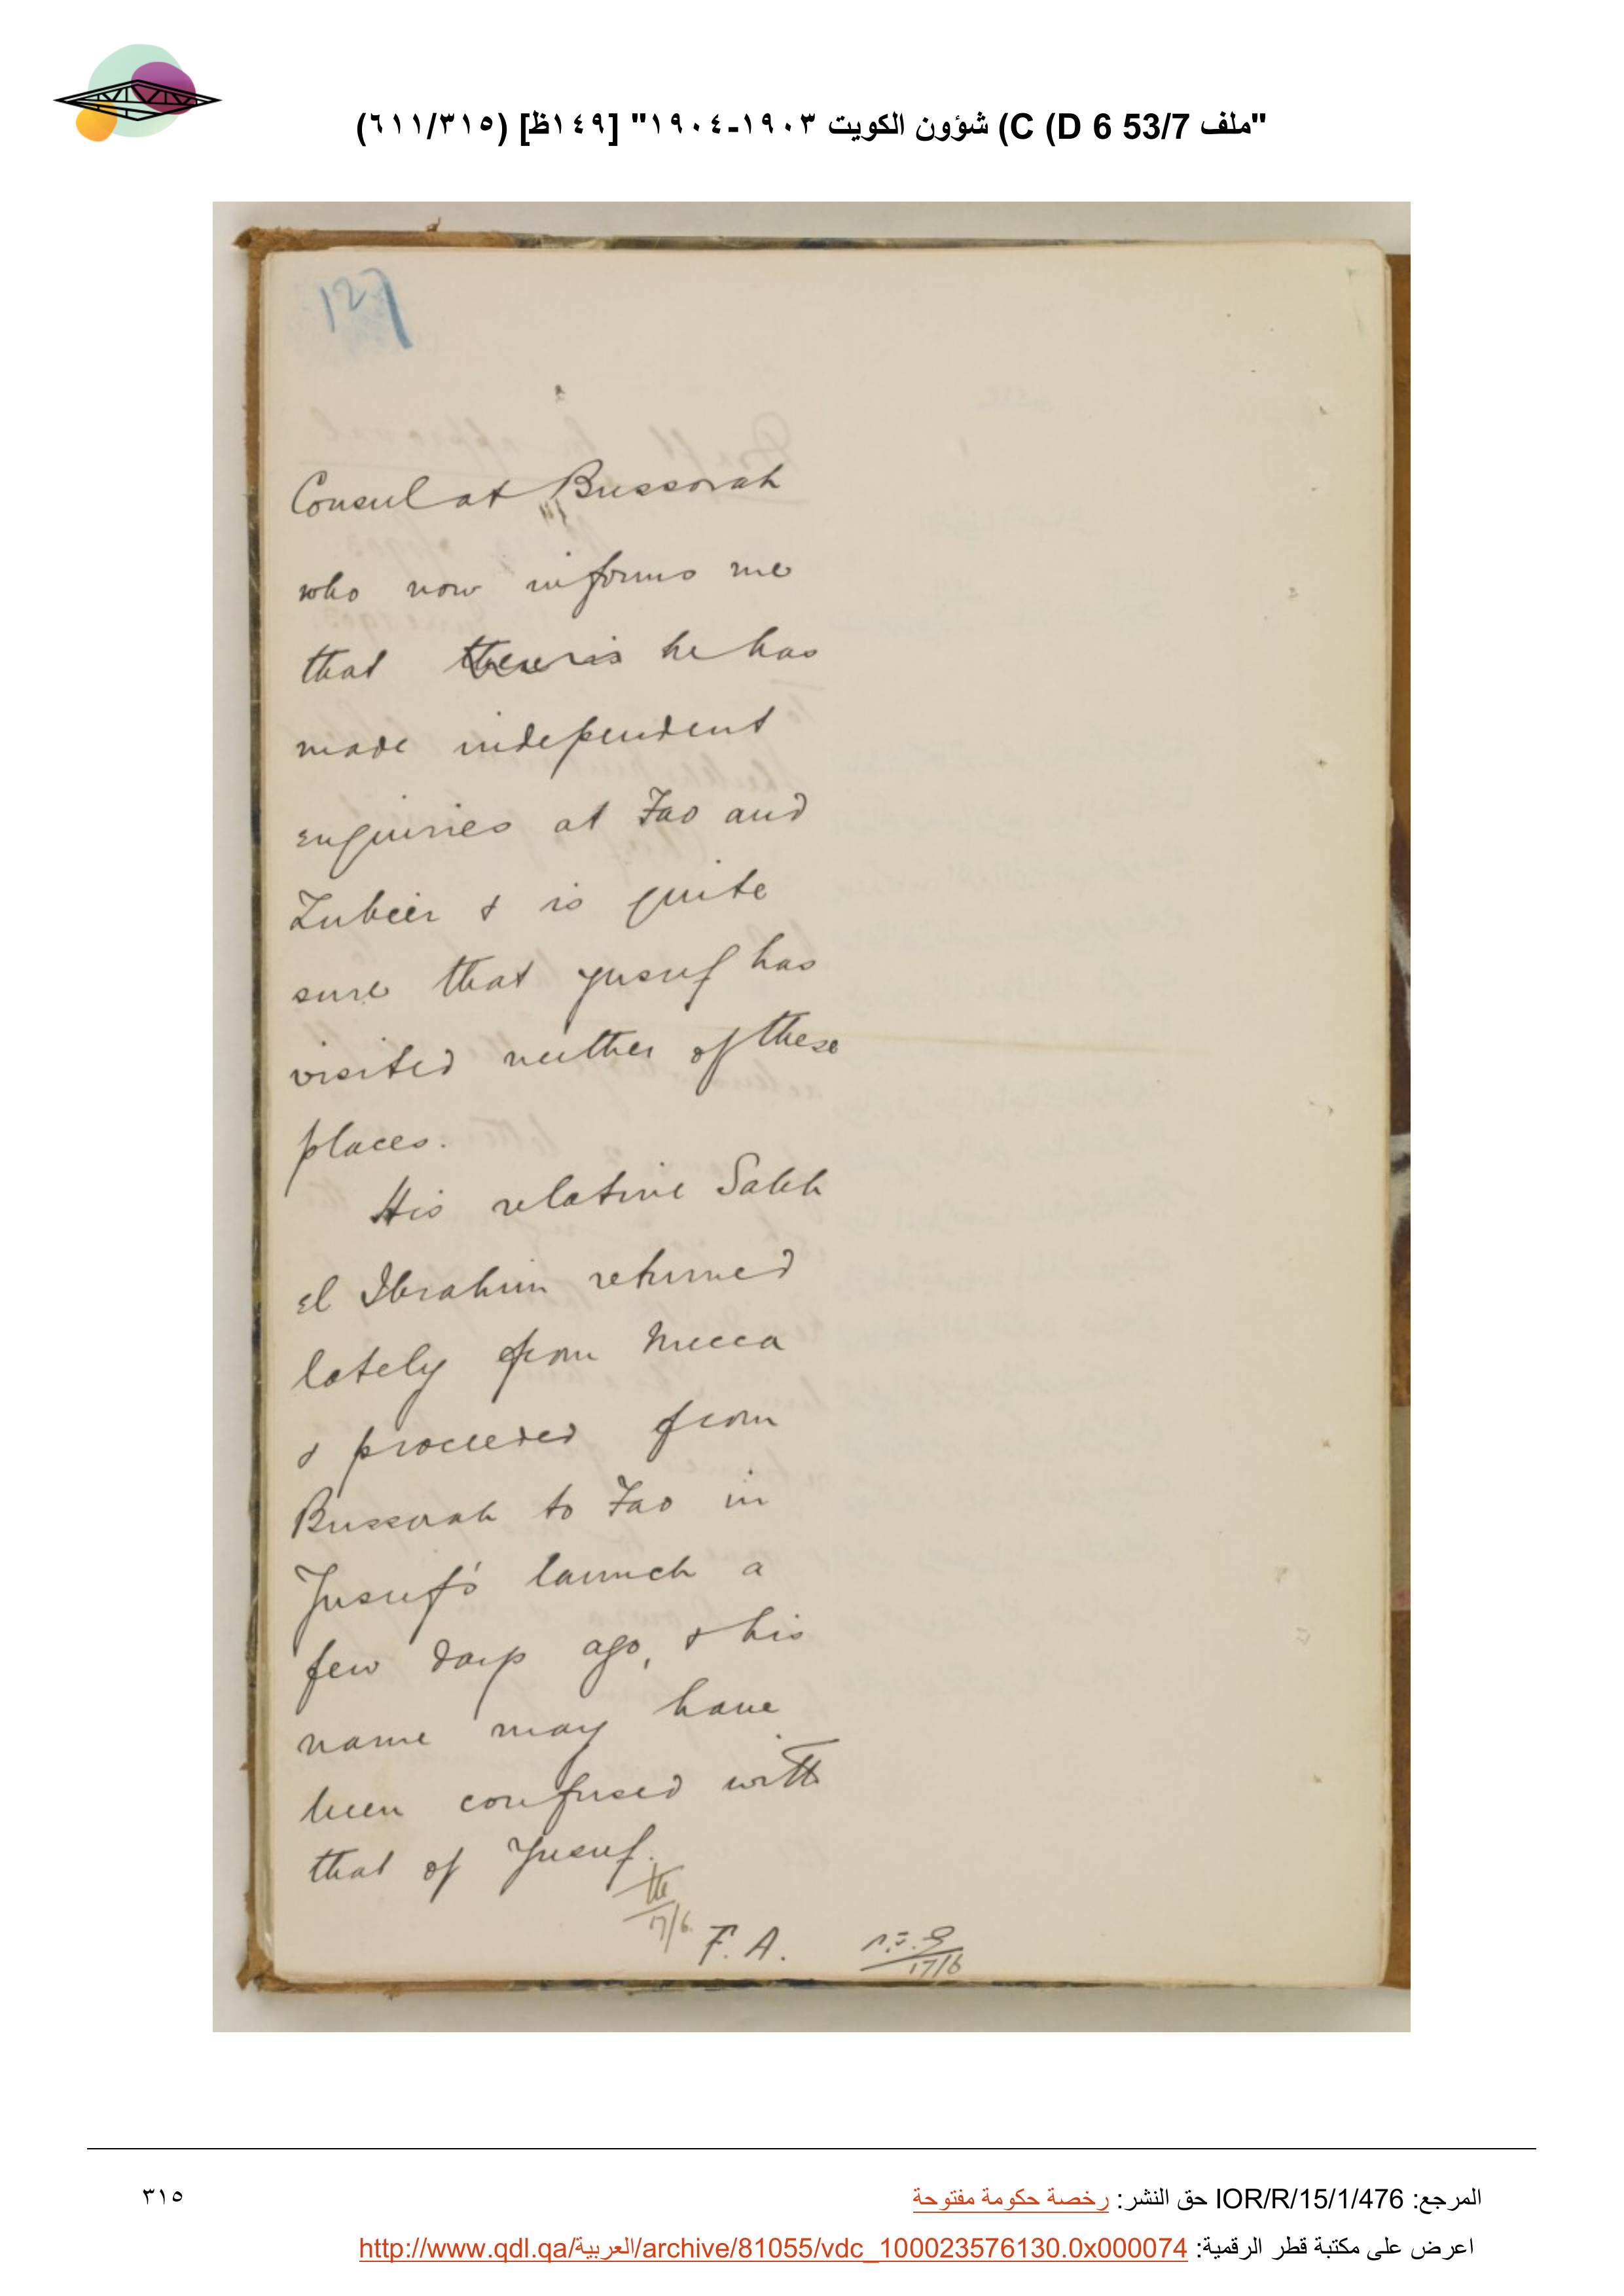 "ملف 53/7 C (D 6) شؤون الكويت ١٩٠٣-١٩٠٤" [١٤٩ظ] (٦١١/٣١٥)
127
Consul at Bussorah
who now informs me
that there is he has
made independent
enquiries at Fao and
Zubeir & is quite
sure that Yusuf has
visited neither of these
places.
His relative Saleh
el Ibrahim returned
lately from Mecca
& proceeded from
Bussorah to Fao in
Yusuf's launch a
few days ago, & his
name may have
been confused with
that of Yusuf.
17/6
F. A.
17/6
المرجع: IOR/R/15/1/476 حق النشر: رخصة حكومة مفتوحة
٣١٥
اعرض على مكتبة قطر الرقمية: http://www.qdl.qa/العربية/archive/81055/vdc_100023576130.0x000074